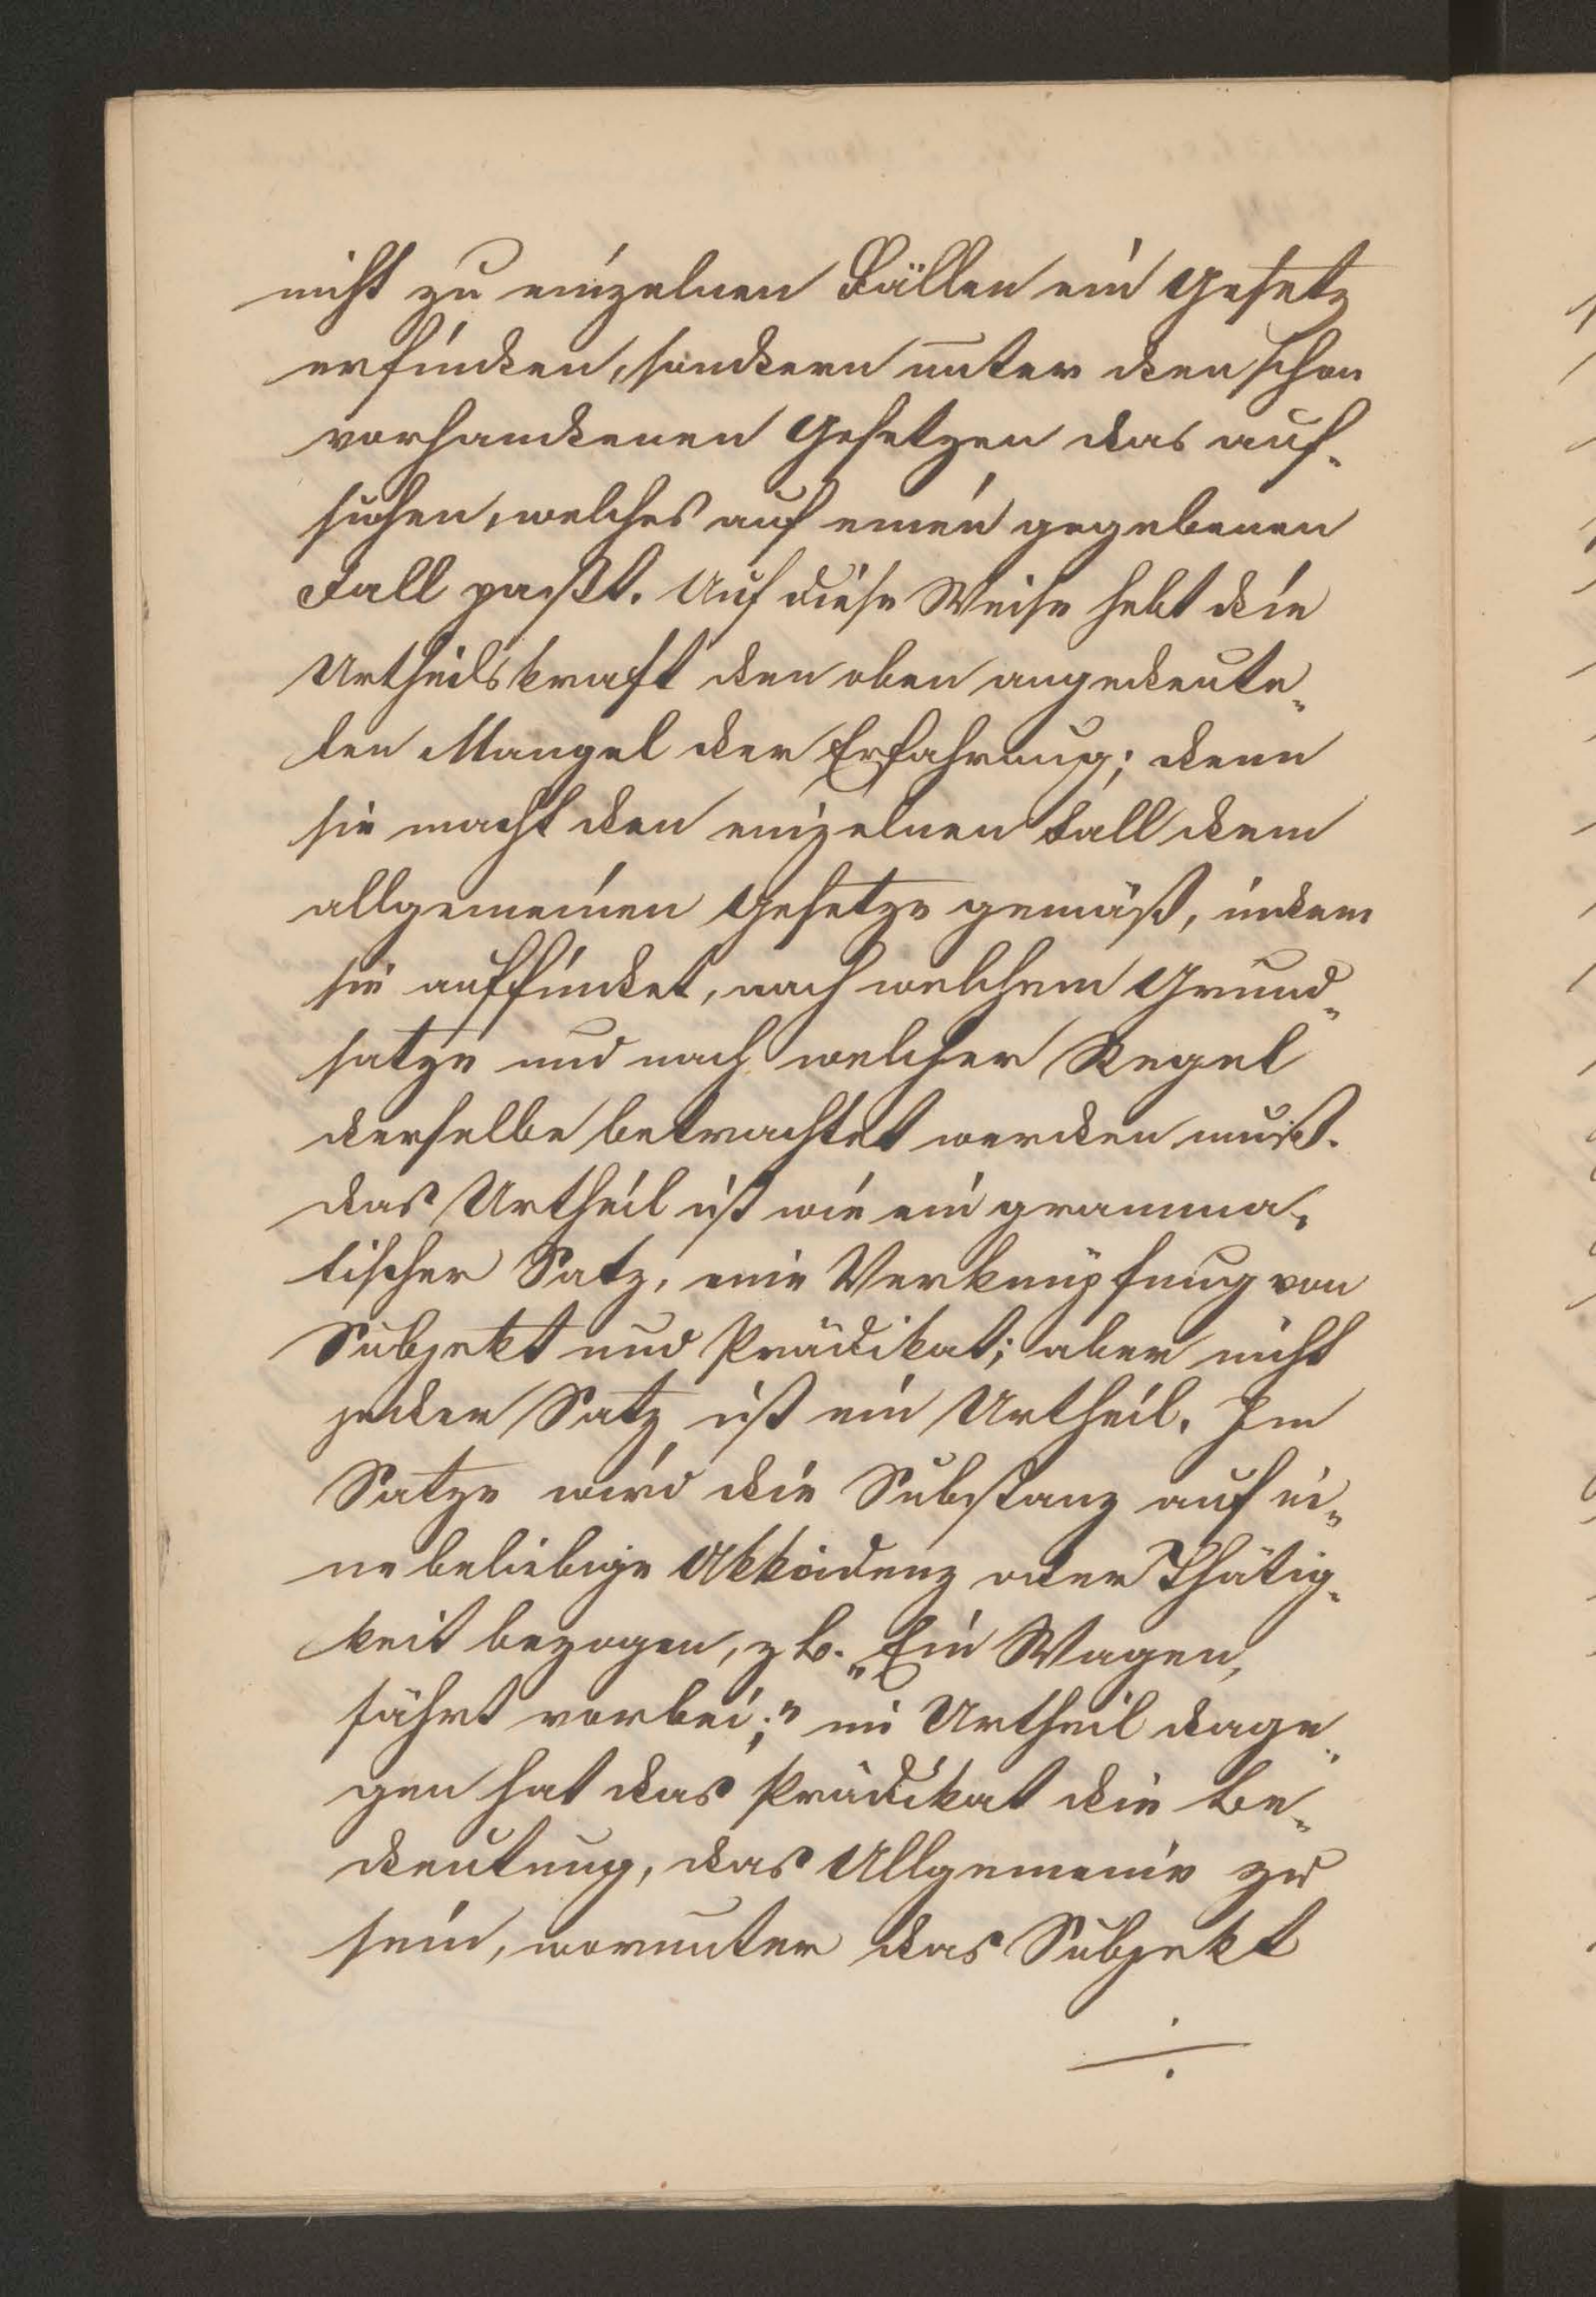 nicht zu einzelnen Fällen ein Gesetz
erfinden, sondern unter den schon
vorhandenen Gesetzen das auf-
suchen, welches auf einen gegebenen
Fall paßt. Auf diese Weise hebt die
Urtheilskraft den oben angedeute-
ten Mangel der Erfahrung; denn
sie macht den einzelnen Fall dem
allgemeinen Gesetze gemäß, indem
sie auffindet, nach welchem Grund-
satze und nach welcher Regel
derselbe betrachtet werden muß.
Das Urtheil ist wie ein gramma-
tischer Satz, eine Verknüpfung von
Subjekt und Prädikat; aber nicht
jeder Satz ist ein Urtheil. Im
Satze wird die Substanz auf ei-
ne beliebige Akkidenz oder Thätig-
keit bezogen, z B. „Ein Wagen,
fährt vorbei;" im Urtheil dage-
gen hat das Prädikat die Be-
deutung, das Allgemeine zu
sein, worunter das Subjekt